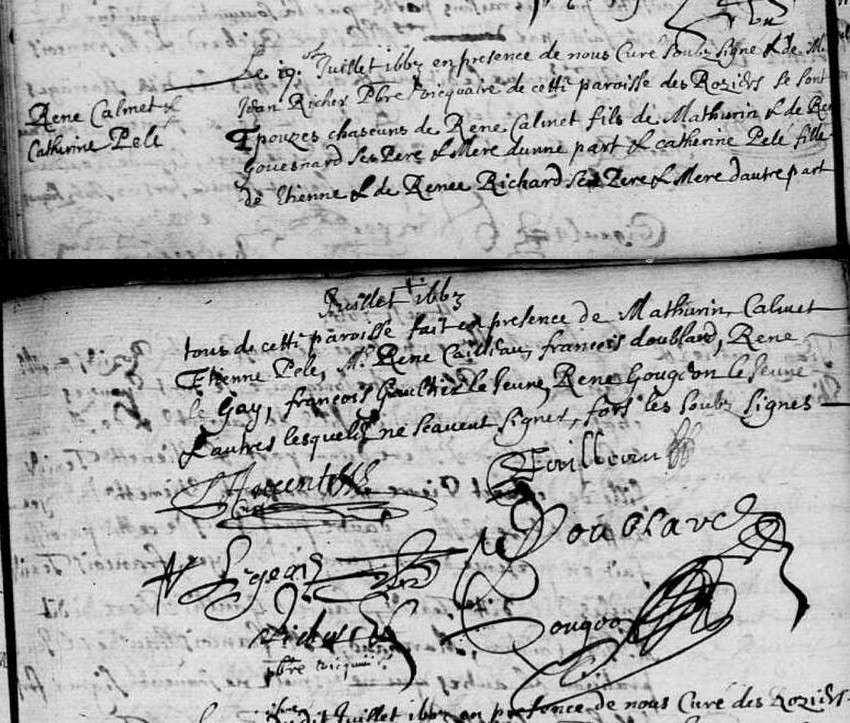 Rene Calmet &
Catherine Pelé
Le 19.e Juillet 1663 en presence de nous Curé soubz signé & de M.
Jean Richer Pbre vicquaire de cette paroisse des Roziers se sont
Epouzes chascuns de Rene Calmet fils de Mathurin & de Re
Gouesnard ses Pere & Mere dunne part & catherine Pelé fille
de Etienne & de Renee Richard ses Pere & Mere dautre part
Juillet 1663
tous de cette paroisse fait en presence de Mathurin Calmet
Etienne Pele, Mr. Rene Cailleau, francois doublard, Rene
le Gay, francois Gaultier le Jeune, Rene Gougeon le Jeune
& autres lesquels ne scavent signer, fors les soubz signes
Doublard
Legeay
Gougeon
Richer
pbre vicquaire
dudit Juillet 1663 en presence de nous Curé des Roziers